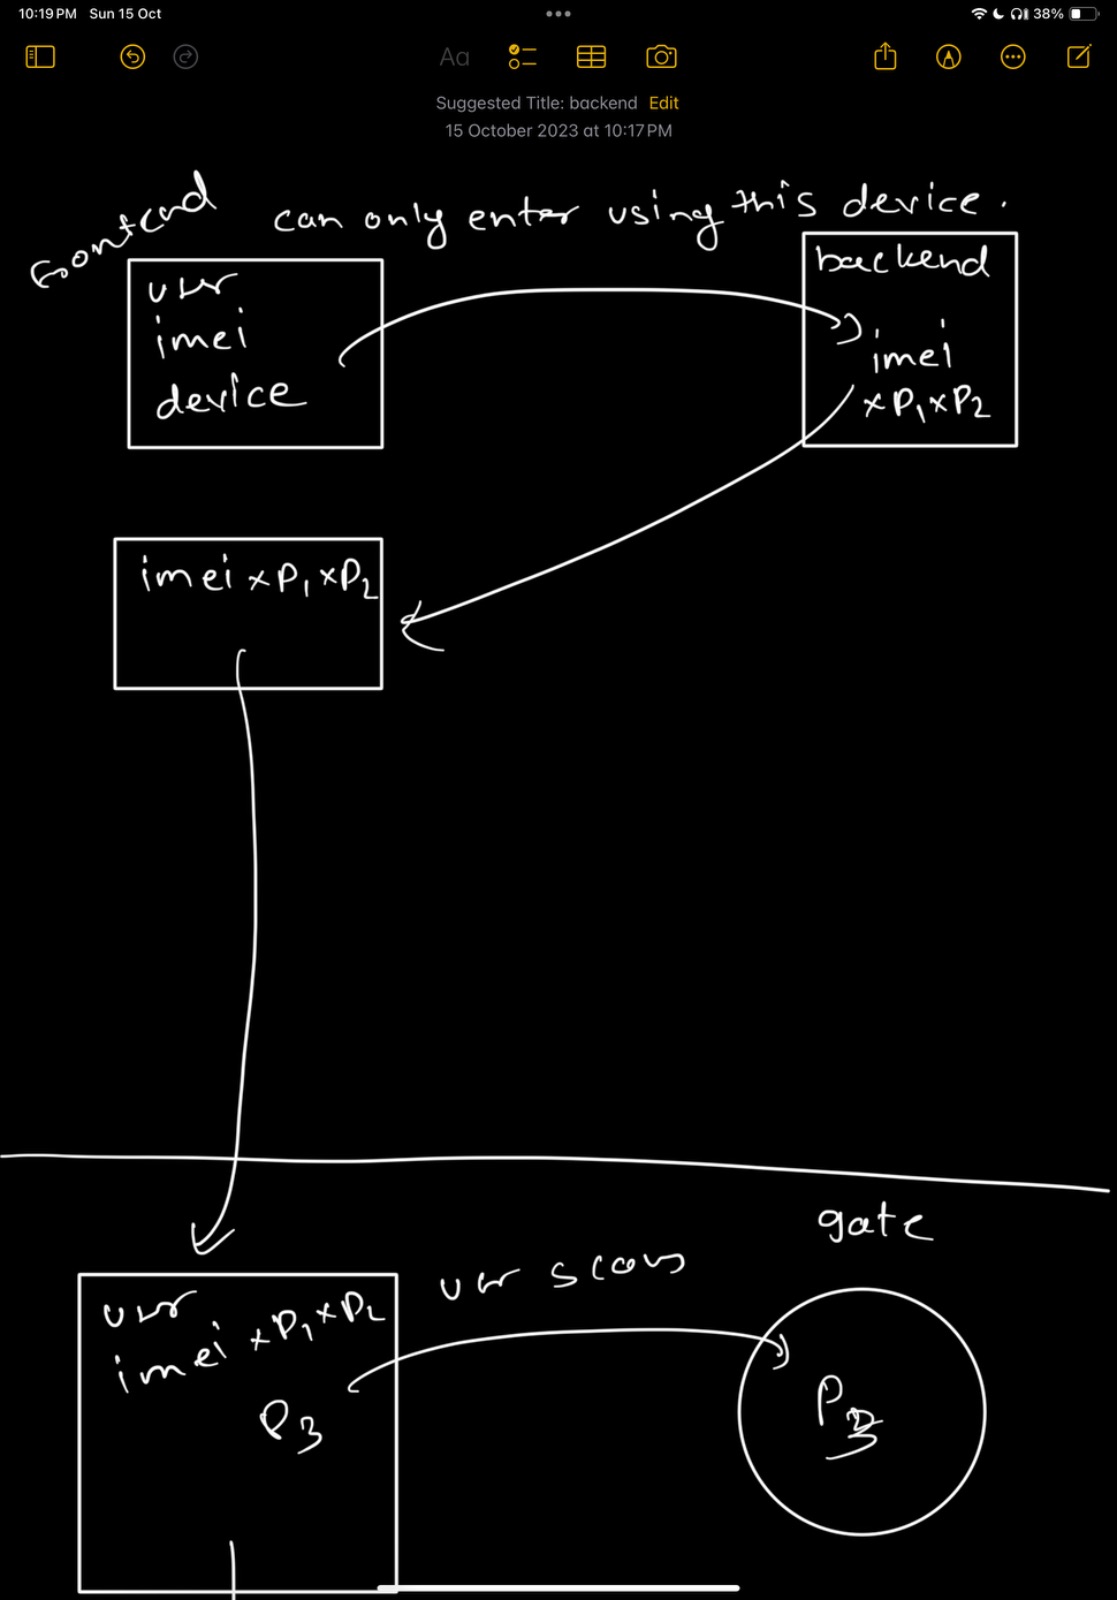 10:19 PM Sun 15 Oct
38%
Aa
Suggested Title: backend Edit
15 October 2023 at 10:17 PM
can only enter using this device.
backend
user
imei
device
imei
×P₁×P₂
imei×P₁×P₂
gate
user scans
user
imei ×P₁×P₂
P₃
P